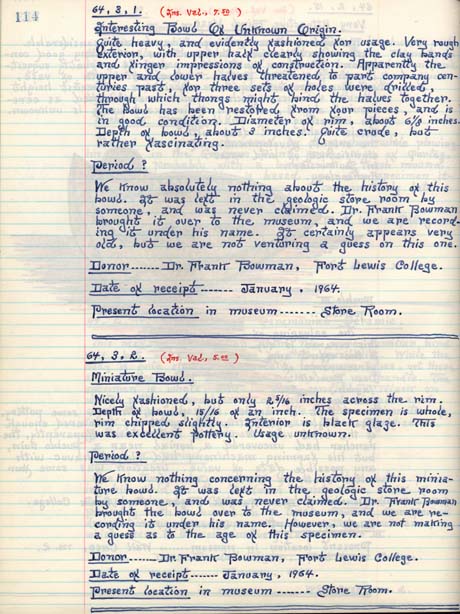 114
64, 3, 1. (Ins. Val., 5.00)
Interesting Bowl Of Unknown Origin.
Quite heavy, and evidently fashioned for usage. Very rough
exterior, with upper half clearly showing the clay bands
and finger impressions of construction. Apparently the
upper and lower halves threatened to part company cen-
turies past, for three sets of holes were drilled,
through which thongs might bind the halves together.
The bowl has been restored from four pieces, and is
in good condition. Diameter of rim, about 6 1/2 inches.
Depth of bowl, about 3 inches. Quite crude, but
rather fascinating.
Period ?
We know absolutely nothing about the history of this
bowl. It was left in the geologic store room by
someone, and was never claimed. Dr. Frank Bowman
brought it over to the museum, and we are record-
ing it under his name. It certainly appears very
old, but we are not venturing a guess on this one.
Donor ------- Dr. Frank Bowman, Fort Lewis College.
Date of receipt ------- January, 1964.
Present location in museum ------- Store Room.
64, 3, 2. (Ins. Val., 5.00)
Miniature Bowl.
Nicely fashioned, but only 2 5/16 inches across the rim.
Depth of bowl, 15/16 of an inch. The specimen is whole,
rim chipped slightly. Interior is black glaze. This
was excellent pottery. Usage unknown.
Period ?
We know nothing concerning the history of this minia-
ture bowl. It was left in the geologic store room
by someone, and was never claimed. Dr. Frank Bowman
brought the bowl over to the museum, and we are re-
cording it under his name. However, we are not making
a guess as to the age of this specimen.
Donor ------ Dr. Frank Bowman, Fort Lewis College.
Date of receipt ------ January, 1964.
Present location in museum ------- Store Room.